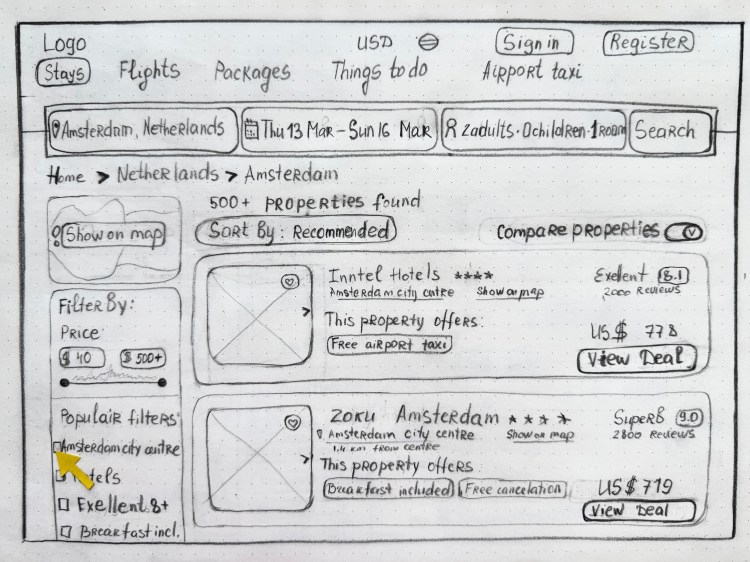 Logo USD Sign in Register
Stays Flights Packages Things to do Airport taxi
Amsterdam, Netherlands Thu 13 Mar - Sun 16 Mar 2adults · 0children · 1room Search
Home > Netherlands > Amsterdam
500+ properties found
Show on map
Sort By: Recommended
Compare properties
Filter By:
Price
$ 40 $ 500+
Populair filters:
Amsterdam city centre
Exellent 8+
Breakfast incl.
Inntel Hotels ****
Amsterdam city cntre Show on map
This property offers:
Free airport taxi
Exellent 8.1
2000 Reviews
US $ 778
View Deal
Zoku Amsterdam ****
Amsterdam city centre Show on map
1,4 km from centre
This property offers
Breakfast included Free cancelation
Superb 9.0
2800 Reviews
US $ 719
View Deal